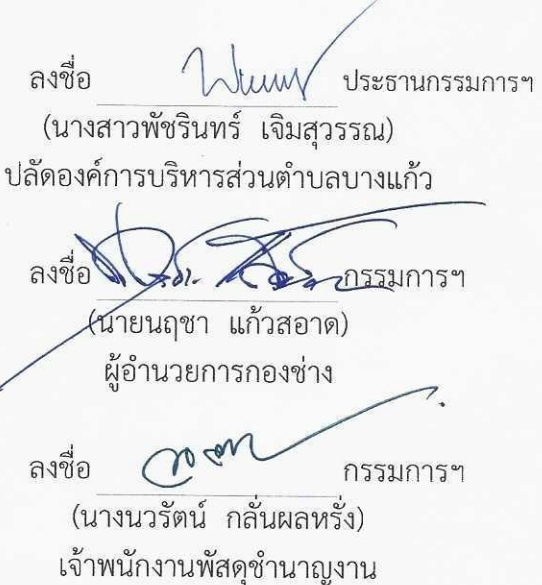 ลงชื่อ ประธานกรรมการฯ
(นางสาวพัชรินทร์ เจิมสุวรรณ)
ปลัดองค์การบริหารส่วนตำบลบางแก้ว
ลงชื่อ กรรมการฯ
(นายนฤชา แก้วสอาด)
ผู้อำนวยการกองช่าง
ลงชื่อ กรรมการฯ
(นางนวรัตน์ กลั่นผลหรั่ง)
เจ้าพนักงานพัสดุชำนาญงาน